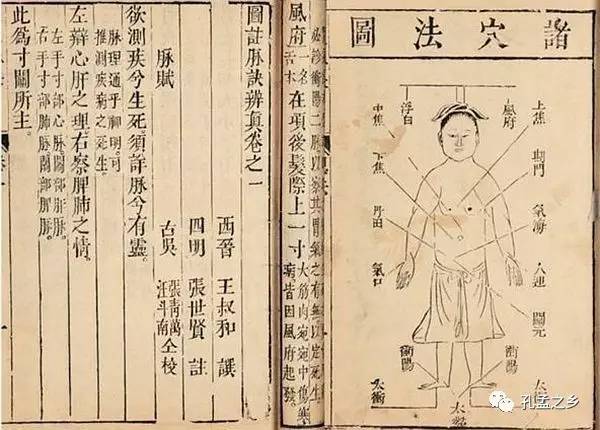 諸穴法圖
上焦
風府
浮白
中焦
期門
下焦
氣海
丹田
人迎
氣口
關元
衝陽
衝陽
太衝
太衝
太谿
必診衝陽二脉以察其胃氣之有無以定死生
風府一名舌本在項後髮際上一寸大筋肉宛宛中傷寒病皆因風府起發。
圖註脉訣辨真卷之一
西晉 王叔和 譔
四明 張世賢 註
古吳 張青萬 汪斗南 仝校
脉賦
欲測疾兮生死。須詳脉兮有靈。
脉理通乎神明。可
推測疾病之死生。
左辯心肝之理。右察脾肺之情。
左手寸部心脉關部肝脉。
右手寸部肺脉關部脾脉。
此爲寸關所主。
孔孟之乡